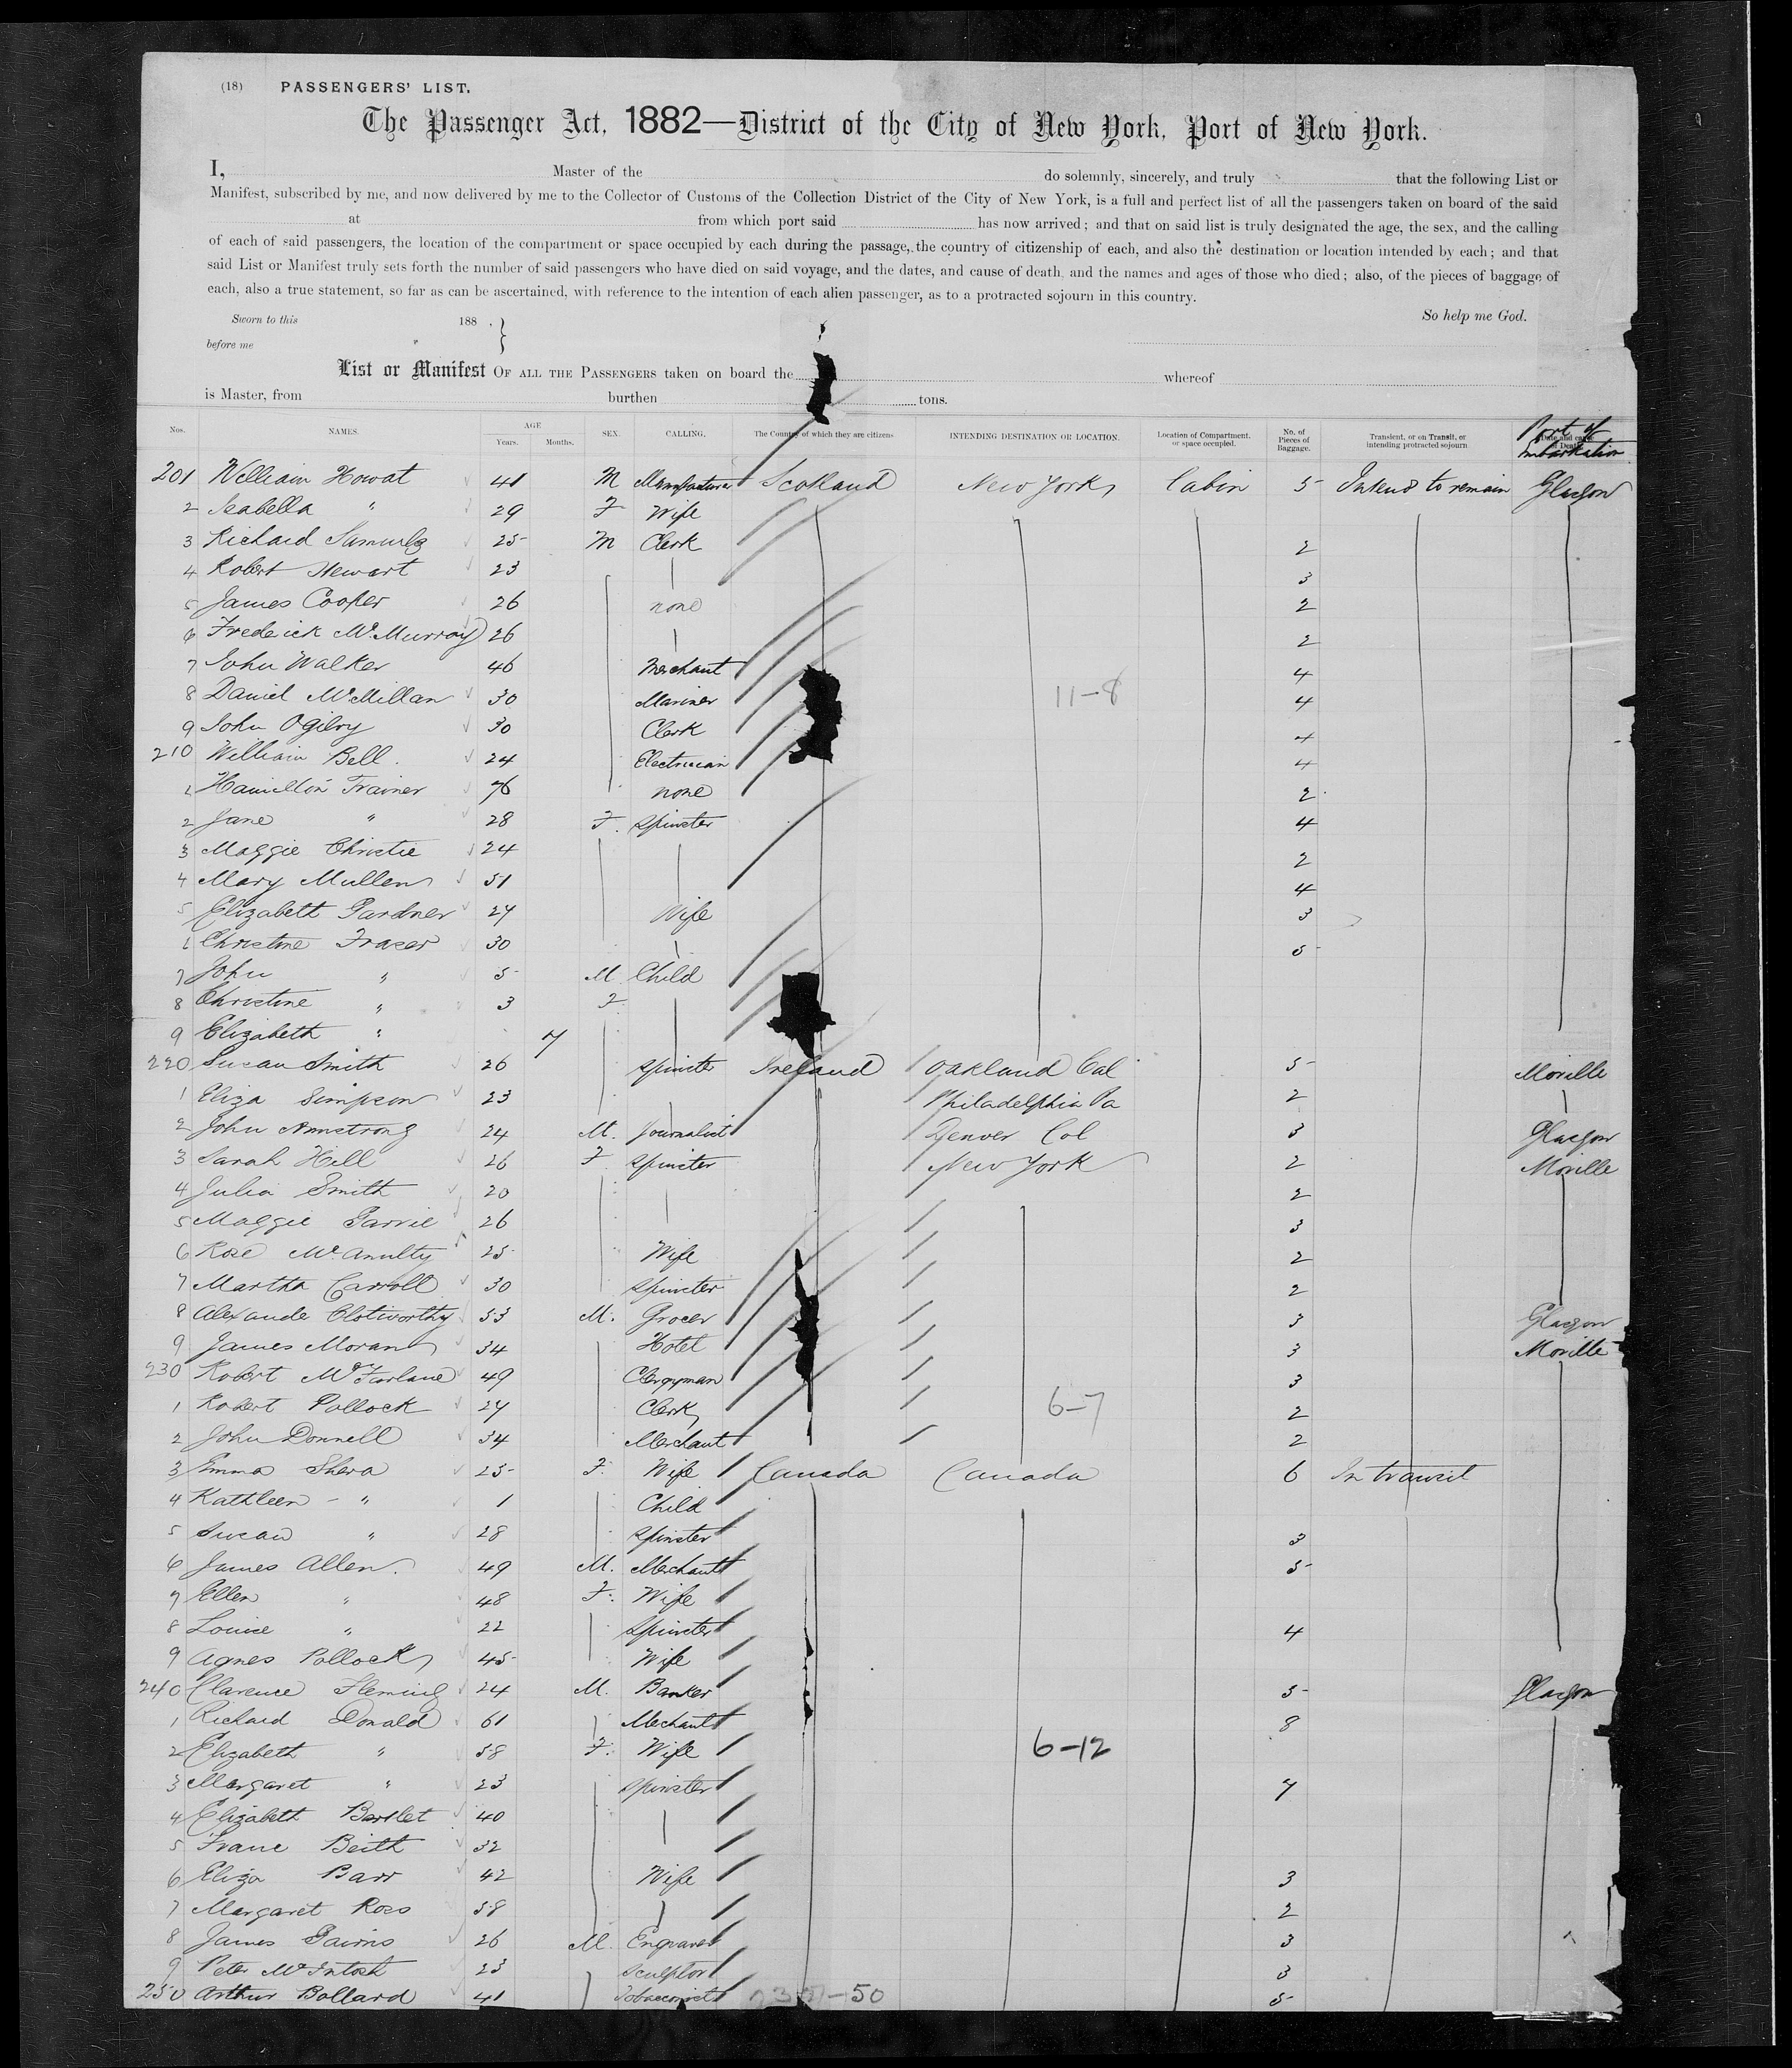 (18) PASSENGERS' LIST.
The Passenger Act, 1882—District of the City of New York, Port of New York.
I, Master of the do solemnly, sincerely, and truly that the following List or
Manifest, subscribed by me, and now delivered by me to the Collector of Customs of the Collection District of the City of New York, is a full and perfect list of all the passengers taken on board of the said
at from which port said has now arrived; and that on said list is truly designated the age, the sex, and the calling
of each of said passengers, the location of the compartment or space occupied by each during the passage, the country of citizenship of each, and also the destination or location intended by each; and that
said List or Manifest truly sets forth the number of said passengers who have died on said voyage, and the dates, and cause of death, and the names and ages of those who died; also, of the pieces of baggage of
each, also a true statement, so far as can be ascertained, with reference to the intention of each alien passenger, as to a protracted sojourn in this country.
Sworn to this 188 . } So help me God.
before me
List or Manifest OF ALL THE PASSENGERS taken on board the whereof
is Master, from burthen tons.
Nos. NAMES. AGE Years. Months. SEX. CALLING. The Country of which they are citizens INTENDING DESTINATION OR LOCATION. Location of Compartment, or space occupied. No. of Pieces of Baggage. Transient, or on Transit, or intending protracted sojourn Port of Embarkation
201 William Howat 41 M Manufacturer Scotland New York Cabin 5 Intend to remain Glasgow
2 Isabella " 29 F Wife
3 Richard 25 M Clerk 2
4 Robert Stewart 23 3
5 James Cooper 26 none 2
6 Frederick McMurray 26 2
7 John Walker 46 Merchant 4
8 Daniel McMillan 30 Mariner 11-8 4
9 John Ogilvy 30 Clerk 4
210 William Bell. 24 Electrician 4
1 Hamilton Trainer 76 none 2
2 Jane " 28 F. Spinster 4
3 Maggie Christie 24 2
4 Mary Mullen 51 4
5 Elizabeth Gardner 27 Wife 3
6 Christine Fraser 30 5
7 John " 5 M Child
8 Christine " 3 F.
9 Elizabeth " 7
220 Susan Smith 26 Spinster Ireland Oakland Cal 5 Moville
1 Eliza Simpson 23 Philadelphia Pa 2
2 John Armstrong 24 M. Journalist Denver Col 3 Glasgow
3 Sarah Hill 26 F. Spinster New York 2 Moville
4 Julia Smith 20 2
5 Maggie Garvie 26 3
6 Rose McAnulty 25 Wife 2
7 Martha Carroll 30 Spinster 2
8 Alexande Clotworthy 53 M. Grocer 3 Glasgow
9 James Moran 34 Hotel 3 Moville
230 Robert McFarlane 49 Clergyman 3
1 Robert Pollock 27 Clerk 6-7 2
2 John Donnell 34 Merchant 2
3 Emma Shera 25 F. Wife Canada Canada 6 In transit
4 Kathleen - " 1 Child
5 Susan " 28 Spinster 3
6 James Allen. 49 M. Merchant 5
7 Ellen " 48 F. Wife
8 Louise " 22 Spinster 4
9 Agnes Pollock 45 Wife
240 Clarence Fleming 24 M. Banker 5 Glasgow
1 Richard Donald 61 Mechant 8
2 Elizabeth " 58 F. Wife 6-12
3 Margaret " 23 Spinster 7
4 Elizabeth Bartlet 40
5 Beith 32
6 Eliza Barr 42 Wife 3
7 Margaret Ross 58 2
8 James Gairns 26 M. Engraver 3
9 Peter McIntosh 23 Sculptor 3
250 Arthur Bollard 41 Tobacconist 5